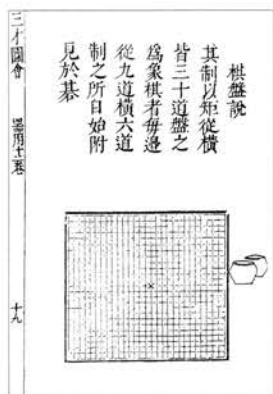 棋盤說
其制以矩從橫
皆三十道盤之
爲象棋者每邊
從九道橫六道
制之所自始附
見於棊
三才圖會
器用十二卷
十九